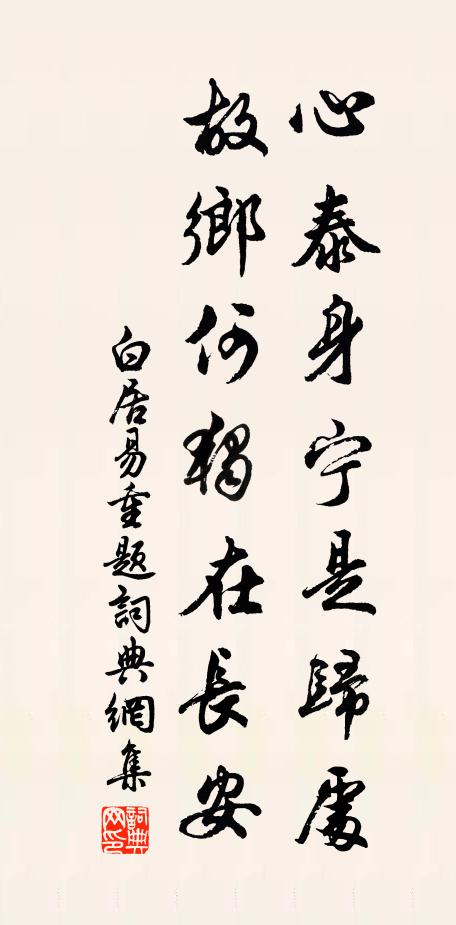 心泰身宁是歸處
故鄉何獨在長安
白居易重題詞典網集
詞典
网印